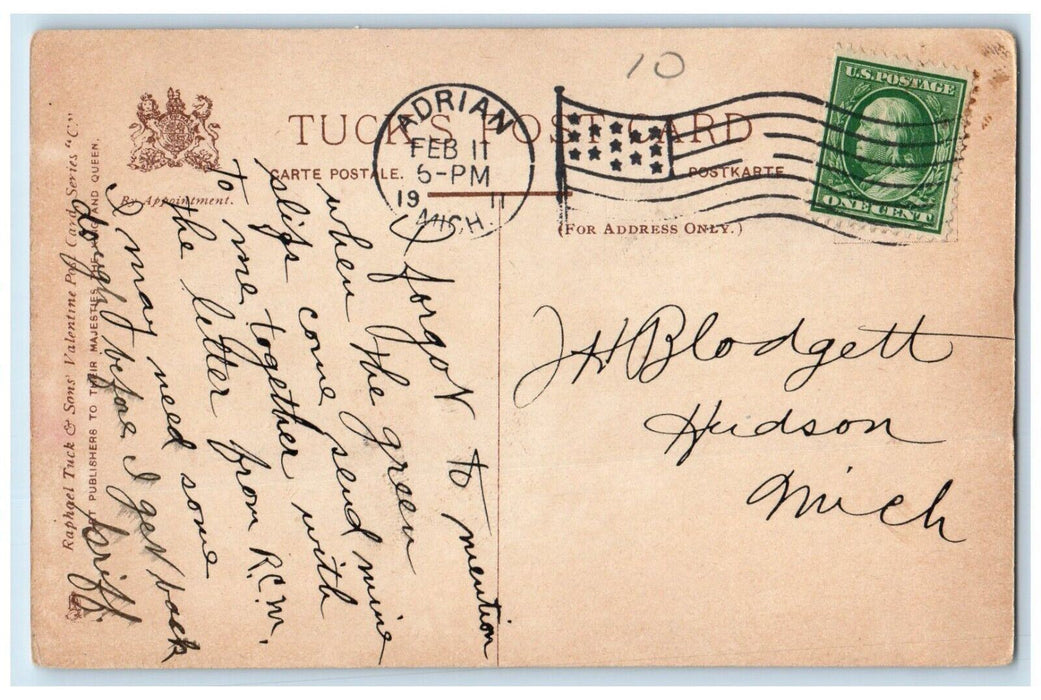 10
U.S. POSTAGE
ONE CENT
ADRIAN
FEB 11
5-PM
19 11
MICH.
TUCK'S POST CARD
CARTE POSTALE.
POSTKARTE
(FOR ADDRESS ONLY.)
By Appointment.
Raphael Tuck & Sons' Valentine Post Card Series "C."
ART PUBLISHERS TO THEIR MAJESTIES THE KING AND QUEEN.
I forgot to mention
when the green
slips come send mine
to me together with
the letter from R.C.W.
I may need some
dough before I get back
Griff.
J H Blodgett
Hudson
Mich